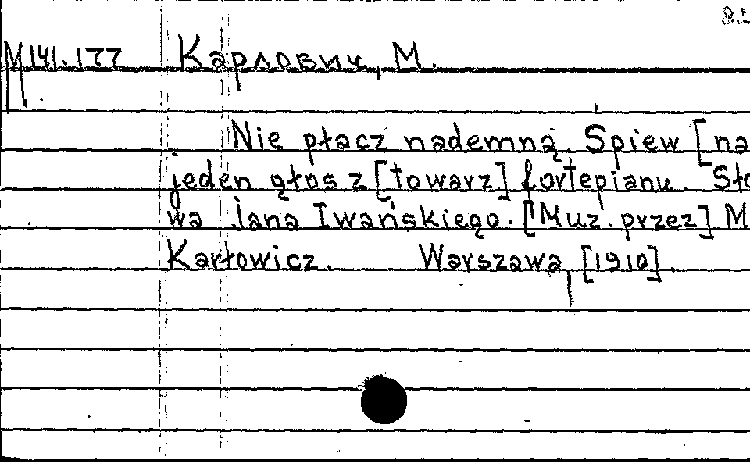 M141.177 Карлович, М.
Nie płacz nademną. Spiew [na
jeden głos z [towarz] fortepianu. Sło
wa Jana Iwańskiego. [Muz. przez] M
Karłowicz. Warszawa, [1910].